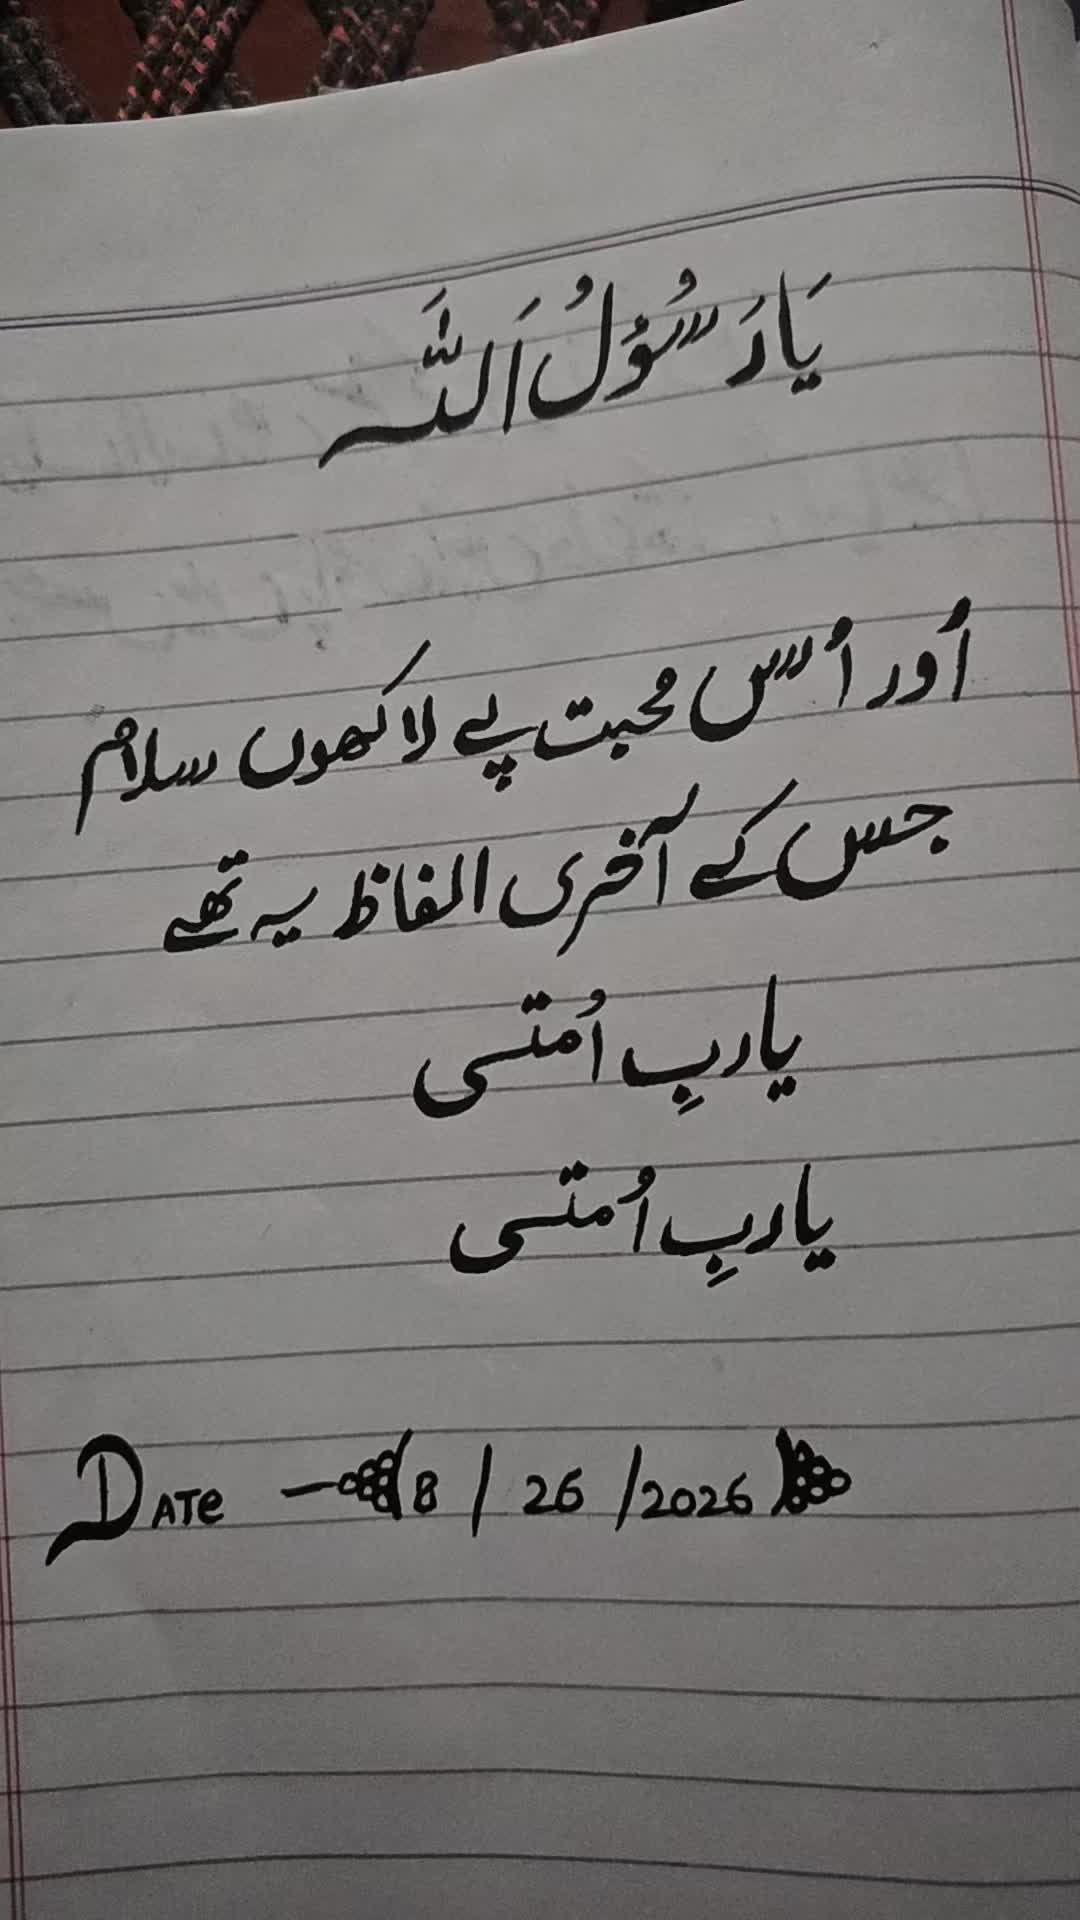 یَا رَسُوْلُ اَللّٰہ
اُور اُس محبت پے لاکھوں سلام
جس کے آخری الفاظ یہ تھے
یا ربِ اُمتی
یا ربِ اُمتی
DATE - (8 / 26 / 2026)